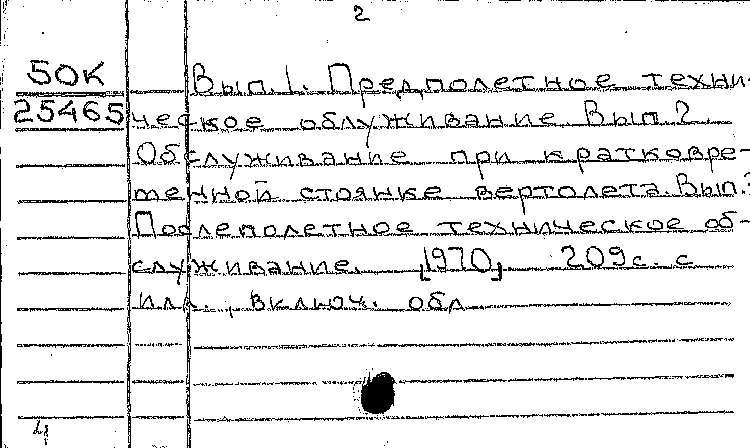 2
50К
25465
Вып. 1. Предполетное техни-
ческое облуживание. Вып. 2.
Обслуживание при кратковре-
менной стоянке вертолета. Вып. 3
Послеполетное техническое об-
служивание. [1970] 209с. с
илл., включ. обл
4